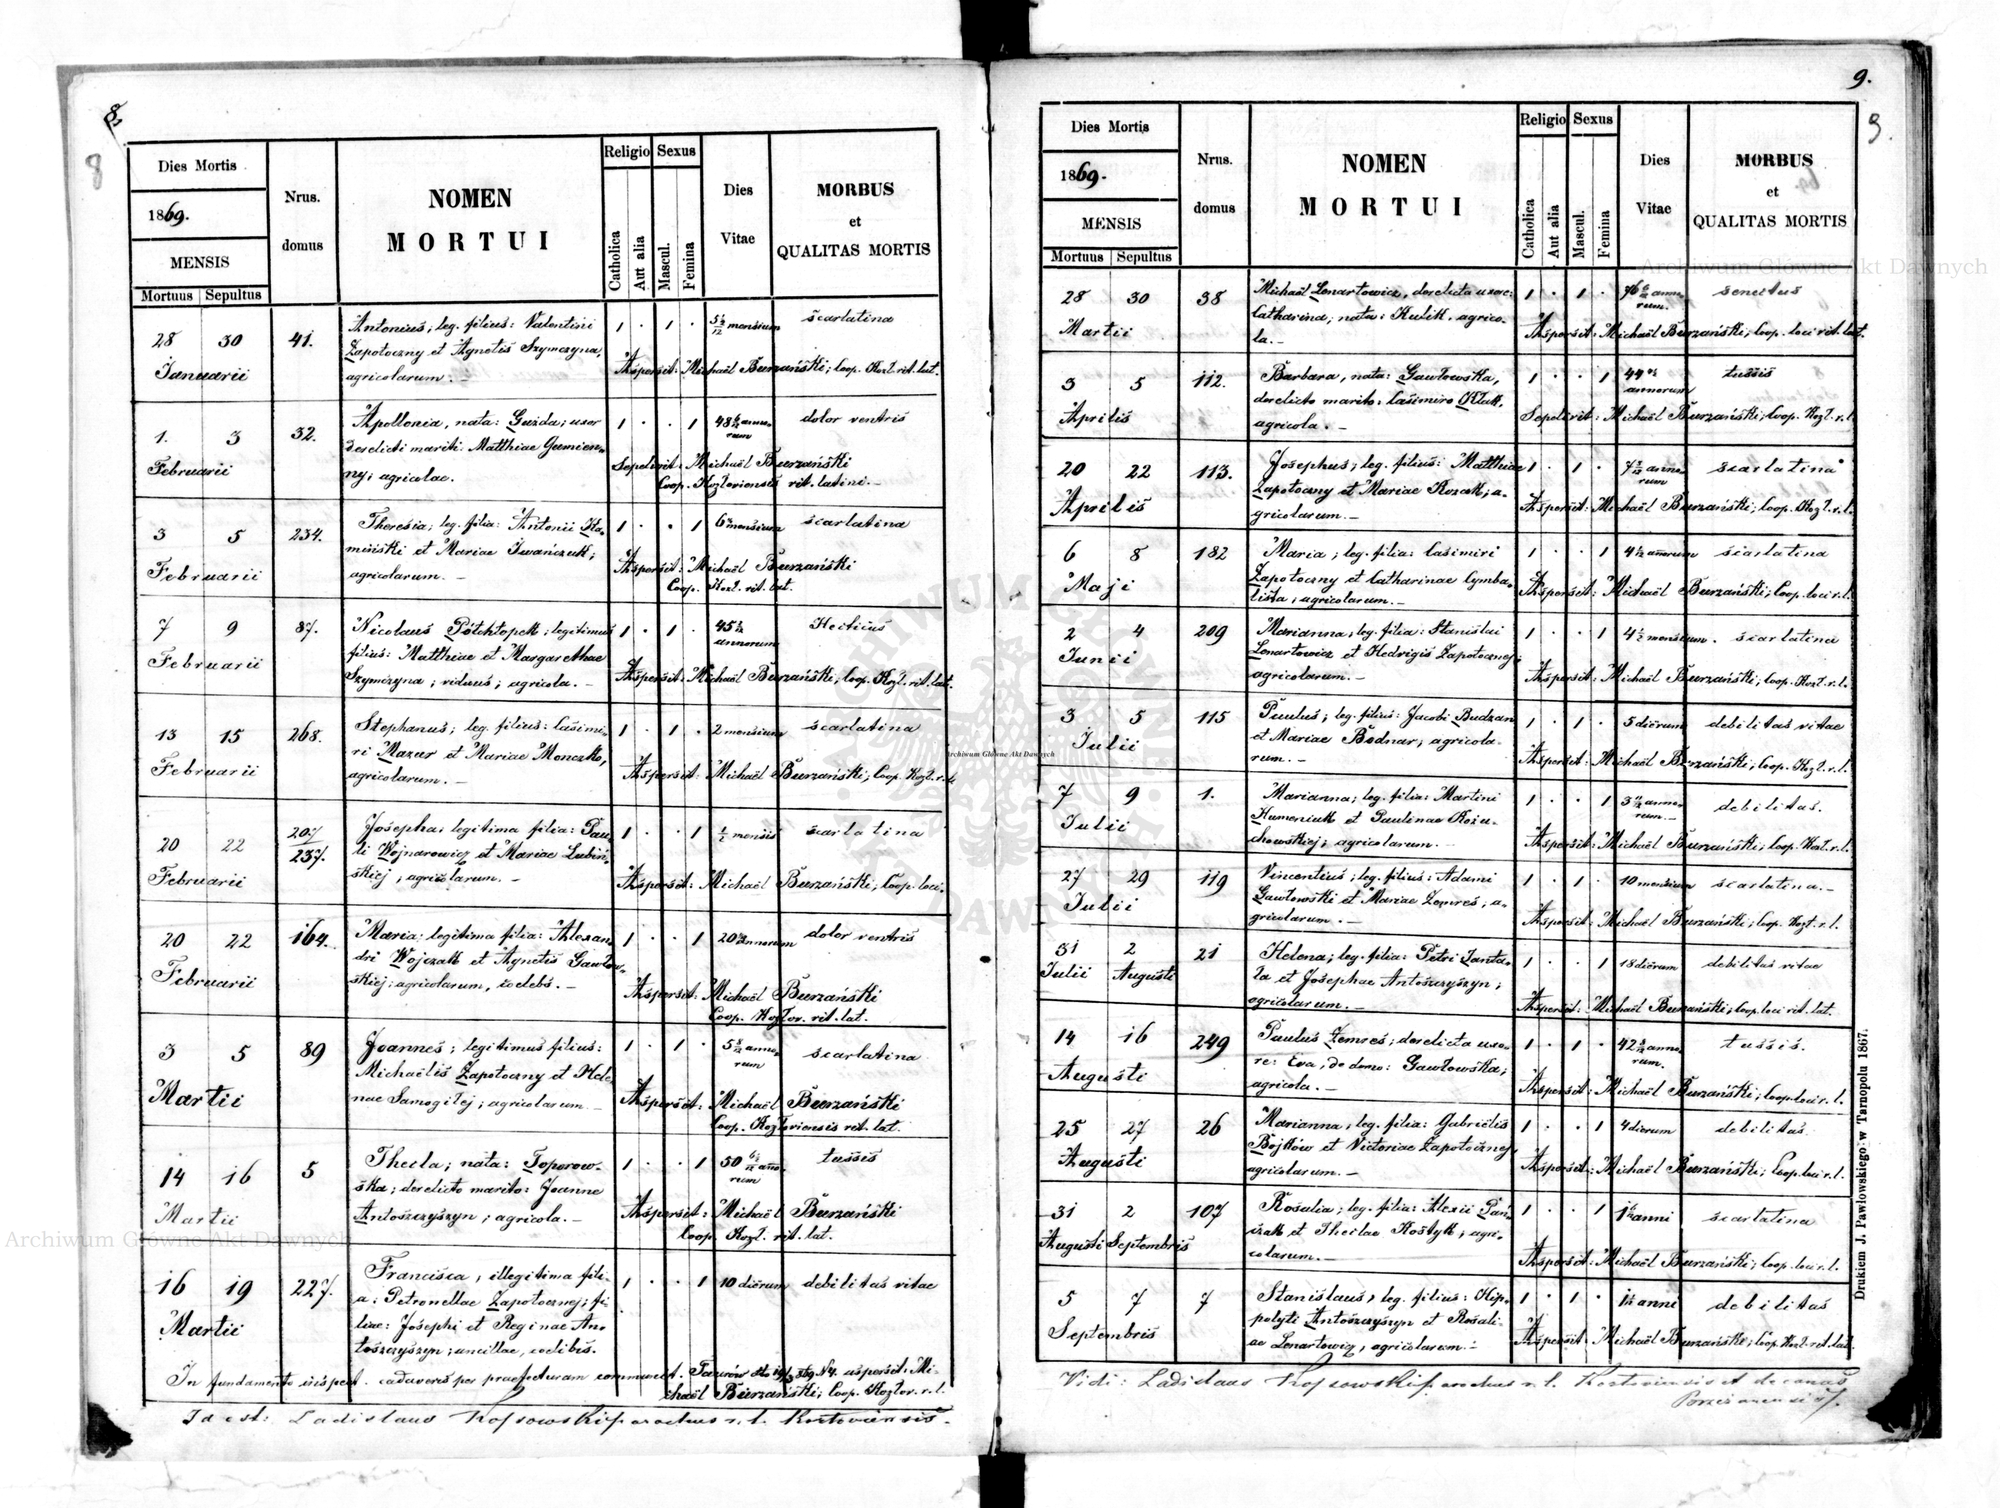 8.
8
Dies Mortis
1869.
MENSIS
Mortuus Sepultus
Nrus.
domus
NOMEN
MORTUI
Religio
Catholica
Aut alia
Sexus
Mascul.
Femina
Dies
Vitae
MORBUS
et
QUALITAS MORTIS
28 30 41. Antonius; leg. filius: Valentini 1 . 1 . mensium scarlatina
Januarii Zapotoczny et Agnetis Szymczyna,
agricolarum. — Aspersit: Michaël Burzański; Coop. Kozł. rit. lat.
1. 3 32. Apollonia, nata: Guzda; uxor 1 . . 1 48 annorum dolor ventris
Februarii derelicti mariti: Matthiae Gumien-
ny; agricolae. Sepelivit: Michaël Burzański
Coop. Kozłoviensis rit. latini. —
3 5 234. Theresia; leg. filia: Antonii Ka- 1 . . 1 6 mensium scarlatina
Februarii miński et Mariae Iwańczuk;
agricolarum. — Aspersit: Michaël Burzański
Coop. Kozł. rit. lat.
7 9 87. Nicolaus Półchłopek; legitimus 1 . 1 . 45 annorum Hecticus
Februarii filius: Matthiae et Margarethae
Szymczyna; viduus; agricola. — Aspersit: Michaël Burzański; Coop. Kozł. rit. lat.
13 15 268. Stephanus; leg. filius: Casimi- 1 . 1 . 2 mensium scarlatina
Februarii ri Mazur et Mariae Monczko,
agricolarum. — Aspersit: Michaël Burzański; Coop. Kozł. r. l.
20 22 207/237. Josepha; legitima filia: Pau- 1 . . 1 ½ mensis scarlatina
Februarii li Wojnarowicz et Mariae Lubiń-
skiej; agricolarum. — Aspersit: Michaël Burzański; Coop. loci.
20 22 164. Maria; legitima filia: Alexan- 1 . . 1 20 annorum dolor ventris
Februarii dri Wojczak et Agnetis Gawłow-
skiej; agricolarum, coelebs. — Aspersit: Michaël Burzański
Coop. Kozłov. rit. lat.
3 5 89 Joannes; legitimus filius: 1 . 1 . 5 annorum scarlatina
Martii Michaëlis Zapotoczny et Hele-
nae Samogiłej; agricolarum. — Aspersit: Michaël Burzański
Coop. Kozłoviensis rit. lat.
14 16 5 Thecla; nata: Toporow- 1 . . 1 50 annorum tussis
Martii ska; derelicto marito: Joanne
Antoszczyszyn; agricola. — Aspersit: Michaël Burzański
Coop. Kozł. rit. lat.
16 19 227. Francisca, illegitima fili- 1 . . 1 10 diërum debilitas vitae
Martii a: Petronellae Zapotocznej; fi-
liae: Josephi et Reginae An-
toszczyszyn; ancillae, coelibis.
In fundamento inspect. cadaveris per praefecturam communicat. Taurów dto 19/3 869 N4. aspersit: Mi-
chaël Burzański; Coop. Kozłov. r. l.
Id est: Ladislaus Kossowski parochus r. l. Kozłoviensis.
9.
9.
Dies Mortis
1869.
MENSIS
Mortuus Sepultus
Nrus.
domus
NOMEN
MORTUI
Religio
Catholica
Aut alia
Sexus
Mascul.
Femina
Dies
Vitae
MORBUS
et
QUALITAS MORTIS
28 30 38 Michaël Lenartowicz, derelicta uxore: 1 . 1 . 76 annorum. senectus
Martii Catharina; nata: Kulik. agrico-
la. — Aspersit: Michaël Burzański; Coop. loci rit. lat.
3 5 112. Barbara, nata: Gawłowska, 1 . . 1 44 annorum tussis
Aprilis derelicto marito: Casimiro Kluk,
agricola. — Sepelivit: Michaël Burzański; Coop. Kozł. r. l.
20 22 113. Josephus; leg. filius: Matthiae 1 . 1 . 7 annorum scarlatina
Aprilis Zapotoczny et Mariae Kozak; a-
gricolarum. — Aspersit: Michaël Burzański; Coop. Kozł. r. l.
6 8 182 Maria; leg. filia: Casimiri 1 . . 1 4 annorum scarlatina
Maji Zapotoczny et Catharinae Cymba-
lista; agricolarum. — Aspersit: Michaël Burzański; Coop. loci r. l.
2 4 209 Marianna; leg. filia: Stanislai 1 . . 1 4½ mensium. scarlatina
Junii Lenartowicz et Hedvigis Zapotocznej;
agricolarum. — Aspersit: Michaël Burzański; Coop. Kozł. r. l.
3 5 115 Paulus; leg. filius: Jacobi Budzan 1 . 1 . 5 diërum debilitas vitae
Julii et Mariae Bodnar; agricola-
rum. — Aspersit: Michaël Burzański; Coop. Kozł. r. l.
7 9 1. Marianna; leg. filia: Martini 1 . . 1 3 annorum. — debilitas.
Julii Humeniuk et Paulinae Kozu-
chowskiej; agricolarum. — Aspersit: Michaël Burzański; Coop. Kozł. r. l.
27 29 119 Vincentius; leg. filius: Adami 1 . 1 . 10 mensium scarlatina. —
Julii Gawłowski et Mariae Zemres; a-
gricolarum. — Aspersit: Michaël Burzański; Coop. Kozł. r. l.
31 2 21 Helena; leg. filia: Petri Janta- 1 . . 1 18 diërum debilitas vitae
Julii Augusti ła et Josephae Antoszczyszyn;
agricolarum. — Aspersit: Michaël Burzański; Coop. loci rit. lat.
14 16 249 Paulus Zemres; derelicta uxo- 1 . 1 . 42 annorum. tussis.
Augusti re: Eva, de domo: Gawłowska;
agricola. — Aspersit: Michaël Burzański; Coop. loci r. l.
25 27 26 Marianna; leg. filia: Gabriëlis 1 . . 1 4 dierum debilitas
Augusti Bojków et Victoriae Zapotocznej,
agricolarum. — Aspersit: Michaël Burzański; Coop. loci r. l.
31 2 107 Rosalia; leg. filia: Alexii Pań- 1 . . 1 anni scarlatina
Augusti Septembris czak et Theclae Kostyk; agri-
colarum. — Aspersit: Michaël Burzański; Coop. loci r. l.
5 7 7 Stanislaus, leg. filius: Hip- 1 . 1 . anni debilitas
Septembris polyti Antoszczyszyn et Rosali-
ae Lenartowicz, agricolarum. — Aspersit: Michaël Burzański; Coop. Kozł. rit. lat.
Vidi: Ladislaus Kossowski parochus r. l. Kozłoviensis et decanus
Brzezanensis
Drukiem J. Pawłowskiego w Tarnopolu 1867.
Archiwum Główne Akt Dawnych
Archiwum Główne Akt Dawnych
Archiwum Główne Akt Dawnych
ARCHIWUM GŁÓWNE AKT DAWNYCH